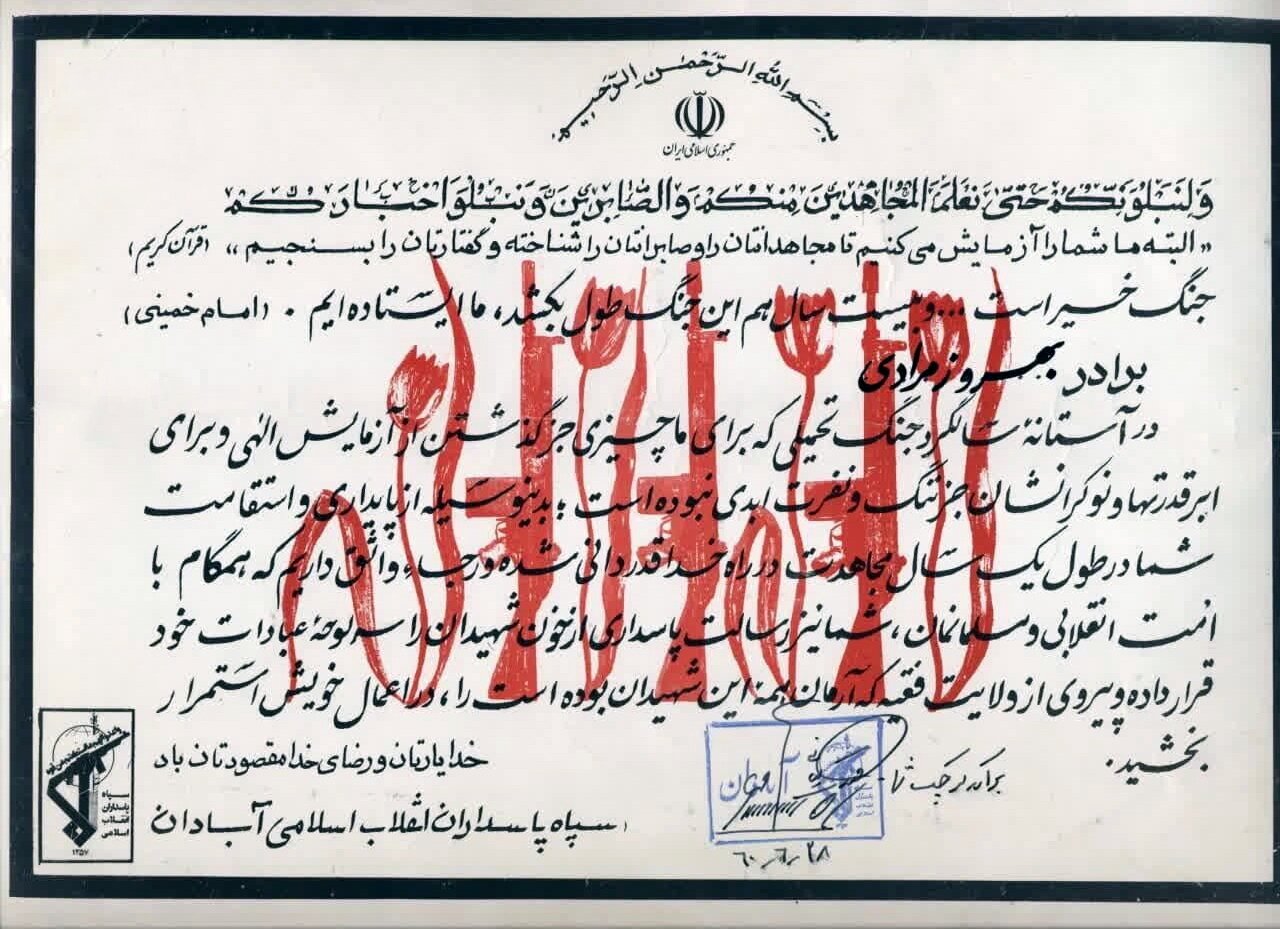 بسم الله الرحمن الرحیم
جمهوری اسلامی ایران
وَلَنَبْلُوَنَّكُمْ حَتَّىٰ نَعْلَمَ الْمُجَاهِدِينَ مِنْكُمْ وَالصَّابِرِينَ وَنَبْلُوَا أَخْبَارَكُمْ
«البته ما شما را آزمایش می کنیم تا مجاهدانتان را و صابرانتان را شناخته و گفتارتان را بسنجیم» (قرآن کریم)
جنگ خیر است ... و بیست سال هم این جنگ طول بکشد، ما ایستاده ایم. (امام خمینی)
برادر بهروز مرادی
در آستانهٔ سالگرد جنگ تحمیلی که برای ما چیزی جز گذشتن از آزمایش الهی و برای
ابرقدرتها و نوکرانشان جز ننگ و نفرت ابدی نبوده است؛ بدینوسیله از پایداری و استقامت
شما در طول یک سال مجاهدت در راه خدا قدردانی شده و رجاء واثق داریم که همگام با
امت انقلابی و مسلمانمان، شما نیز رسالت پاسداری از خون شهیدان را سرلوحهٔ عبادات خود
قرار داده و پیروی از ولایت فقیه که آرمان همهٔ این شهیدان بوده است را، در اعمال خویش استمرار
بخشید.
خدا یارتان و رضای خدا مقصودتان باد
سپاه پاسداران انقلاب اسلامی آبادان
سپاه
پاسداران
انقلاب
اسلامی
۱۳۵۷
آبادان
۶۰/۶/۲۸